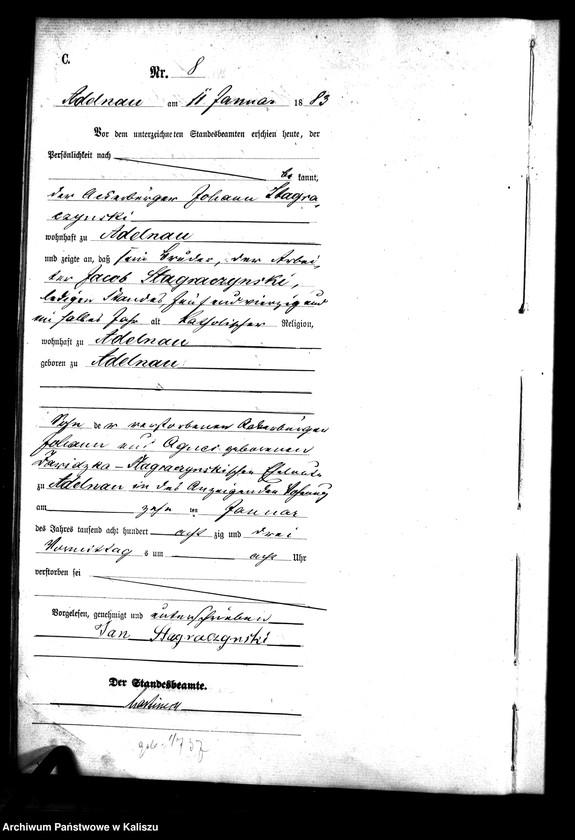 C.
Nr. 8
Adelnau am 11 Januar 1883
Vor dem unterzeichneten Standesbeamten erschien heute, der
Persönlichkeit nach
be kannt,
der Ackerbürger Johann Stagra
czynski
wohnhaft zu Adelnau
und zeigte an, daß sein Bruder, der Arbei
ter Jacob Stagraczynski,
ledigen Standes, fünfundvierzig und
ein halbes Jahr alt katholischer Religion,
wohnhaft zu Adelnau
geboren zu Adelnau
Sohn der verstorbenen Ackerbürger
Johann und Agnes geborenen
Zawidzka-Stagraczynskischen Eheleute
zu Adelnau in des Anzeigenden Wohnung
am zehn ten Januar
des Jahres tausend acht hundert acht zig und drei
Vormittag s um acht Uhr
verstorben sei
Vorgelesen, genehmigt und unterschrieben
Jan Stagraczynski
Der Standesbeamte.
geb.
Archiwum Państwowe w Kaliszu